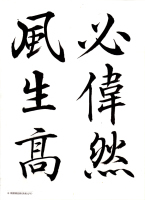 必偉然
風生高